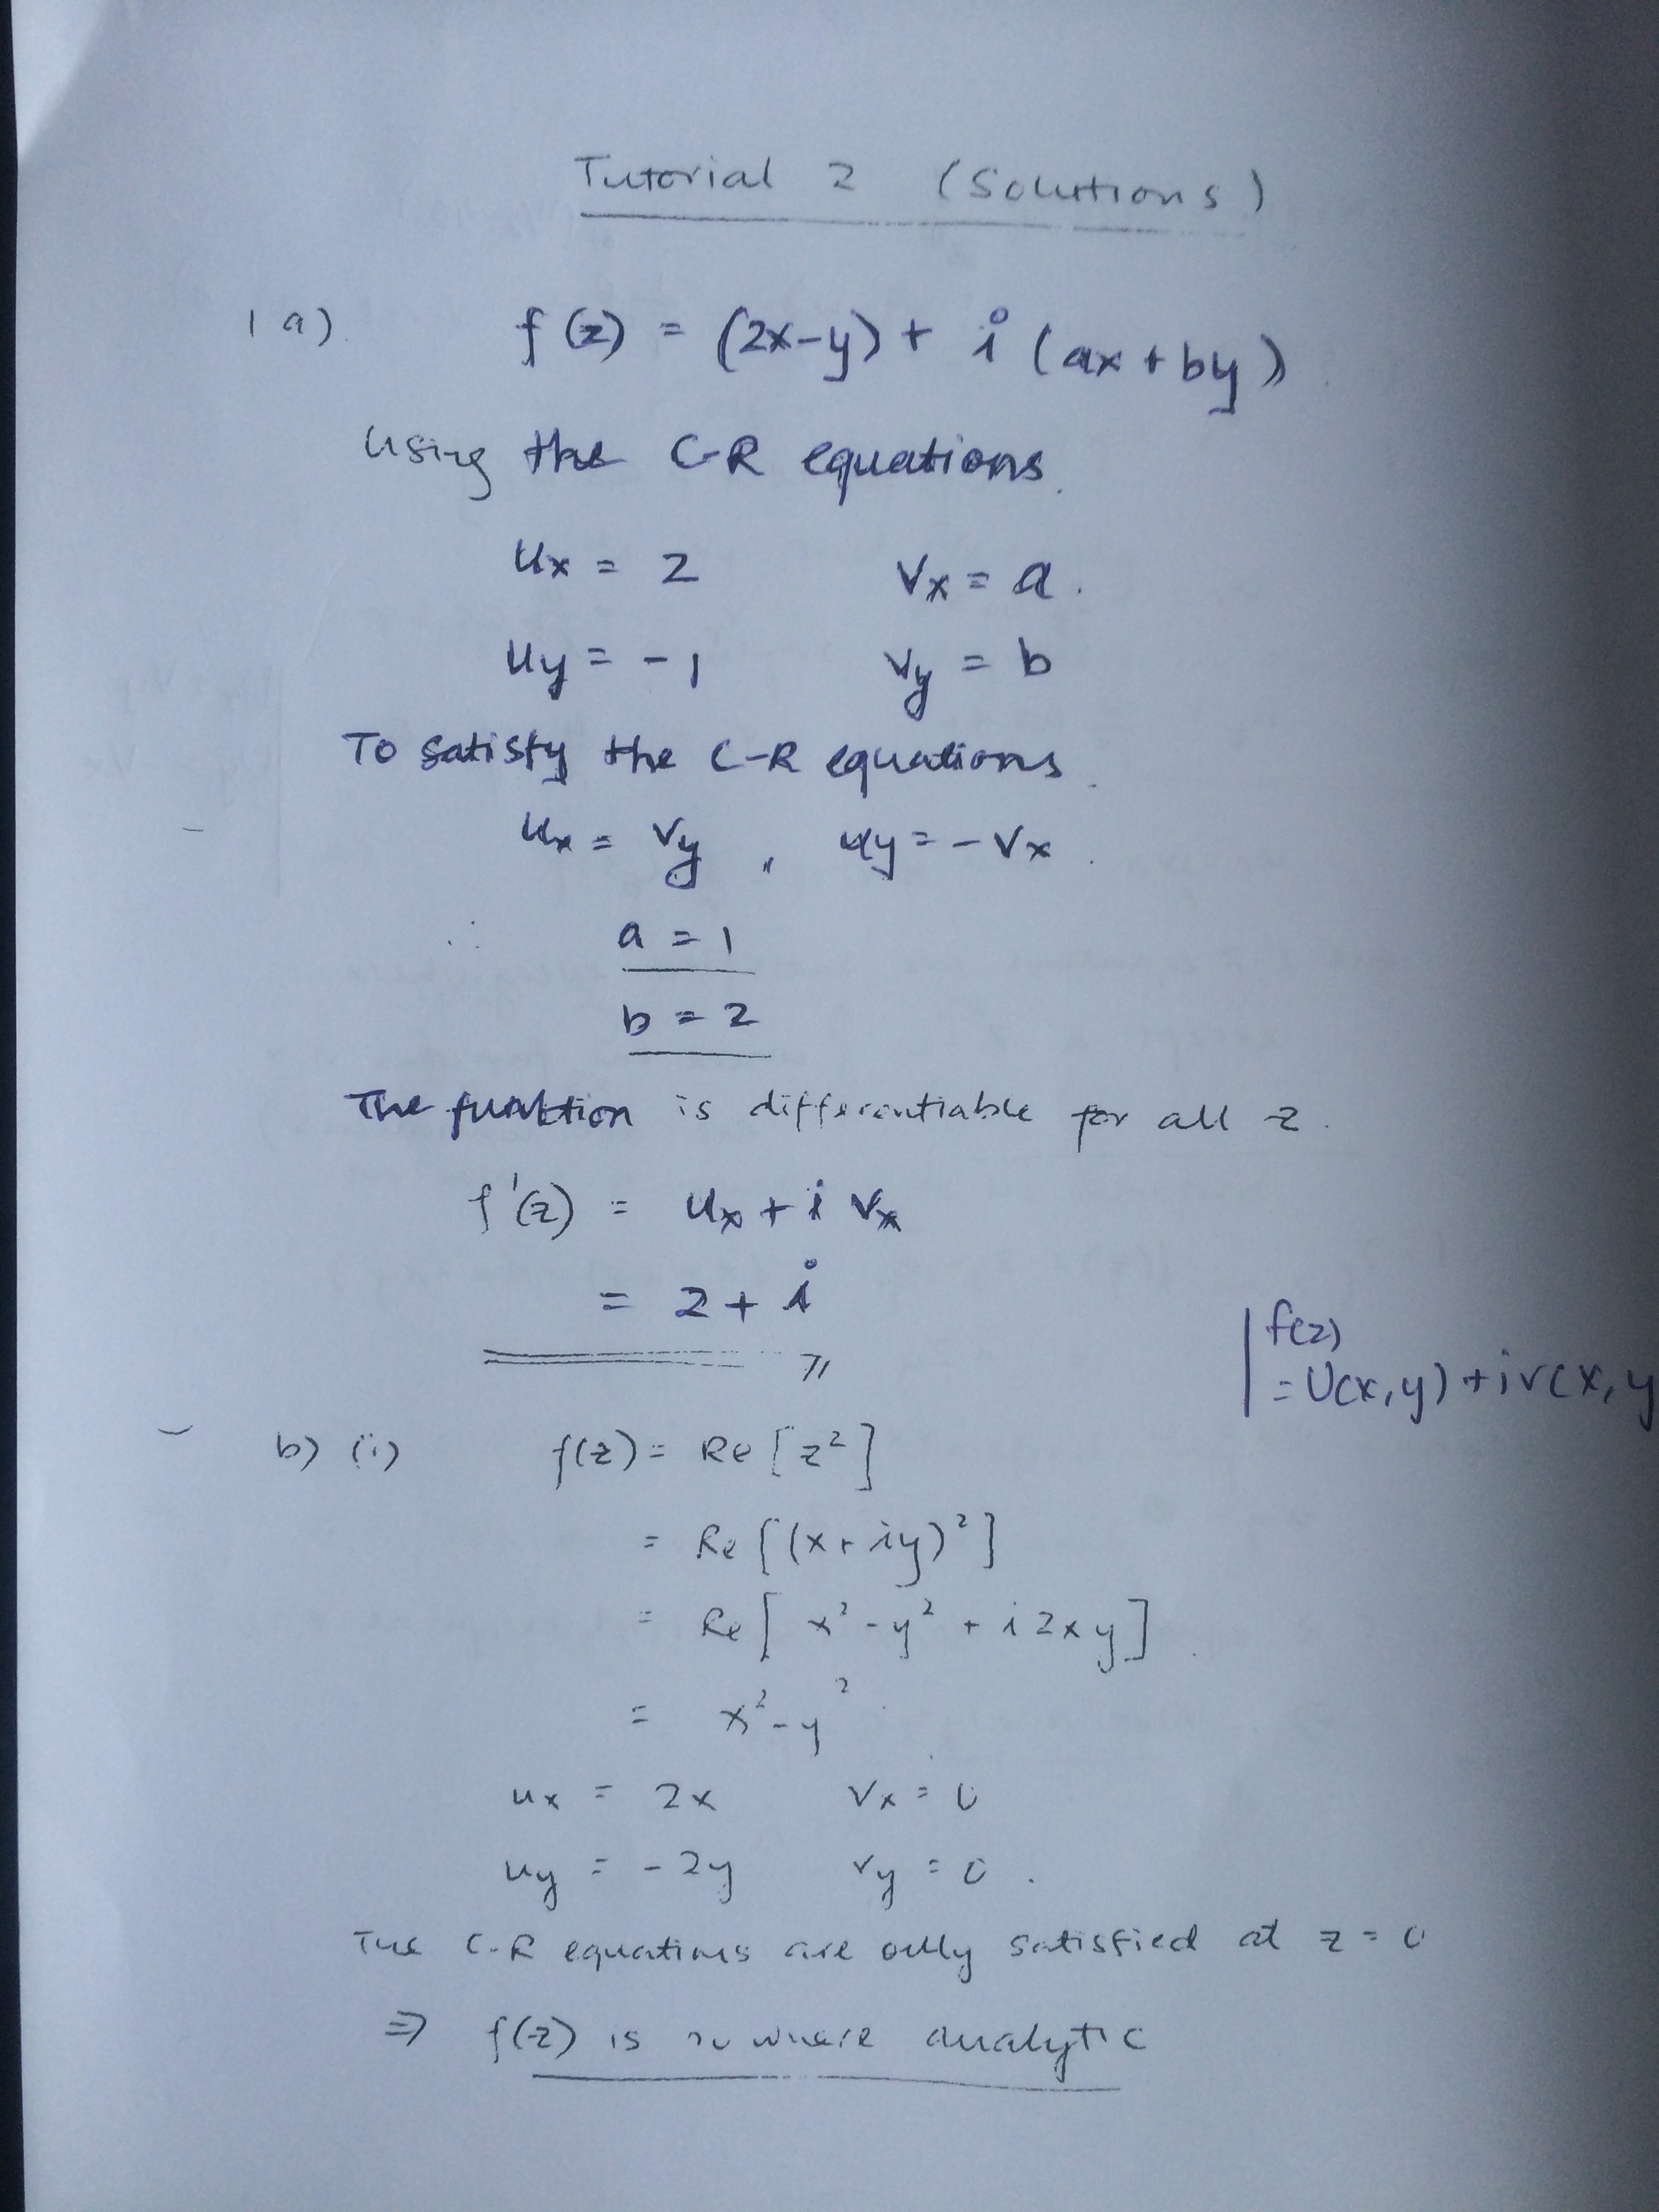 Tutorial 2 (Solutions)
1 a) f(z) = (2x-y) + i (ax + by)
Using the C-R equations.
ux = 2 vx = a.
uy = -1 vy = b
To satisfy the C-R equations.
ux = vy , uy = -vx
∴ a = 1
b = 2
The function is differentiable for all z.
f'(z) = ux + i vx
= 2 + i
f(z)
= U(x,y) + iv(x,y
b) (i) f(z) = Re [z²]
= Re [(x + iy)²]
= Re [x² - y² + i 2xy]
= x² - y²
ux = 2x vx = 0
uy = -2y vy = 0.
The C-R equations are only satisfied at z = 0
⇒ f(z) is nowhere analytic